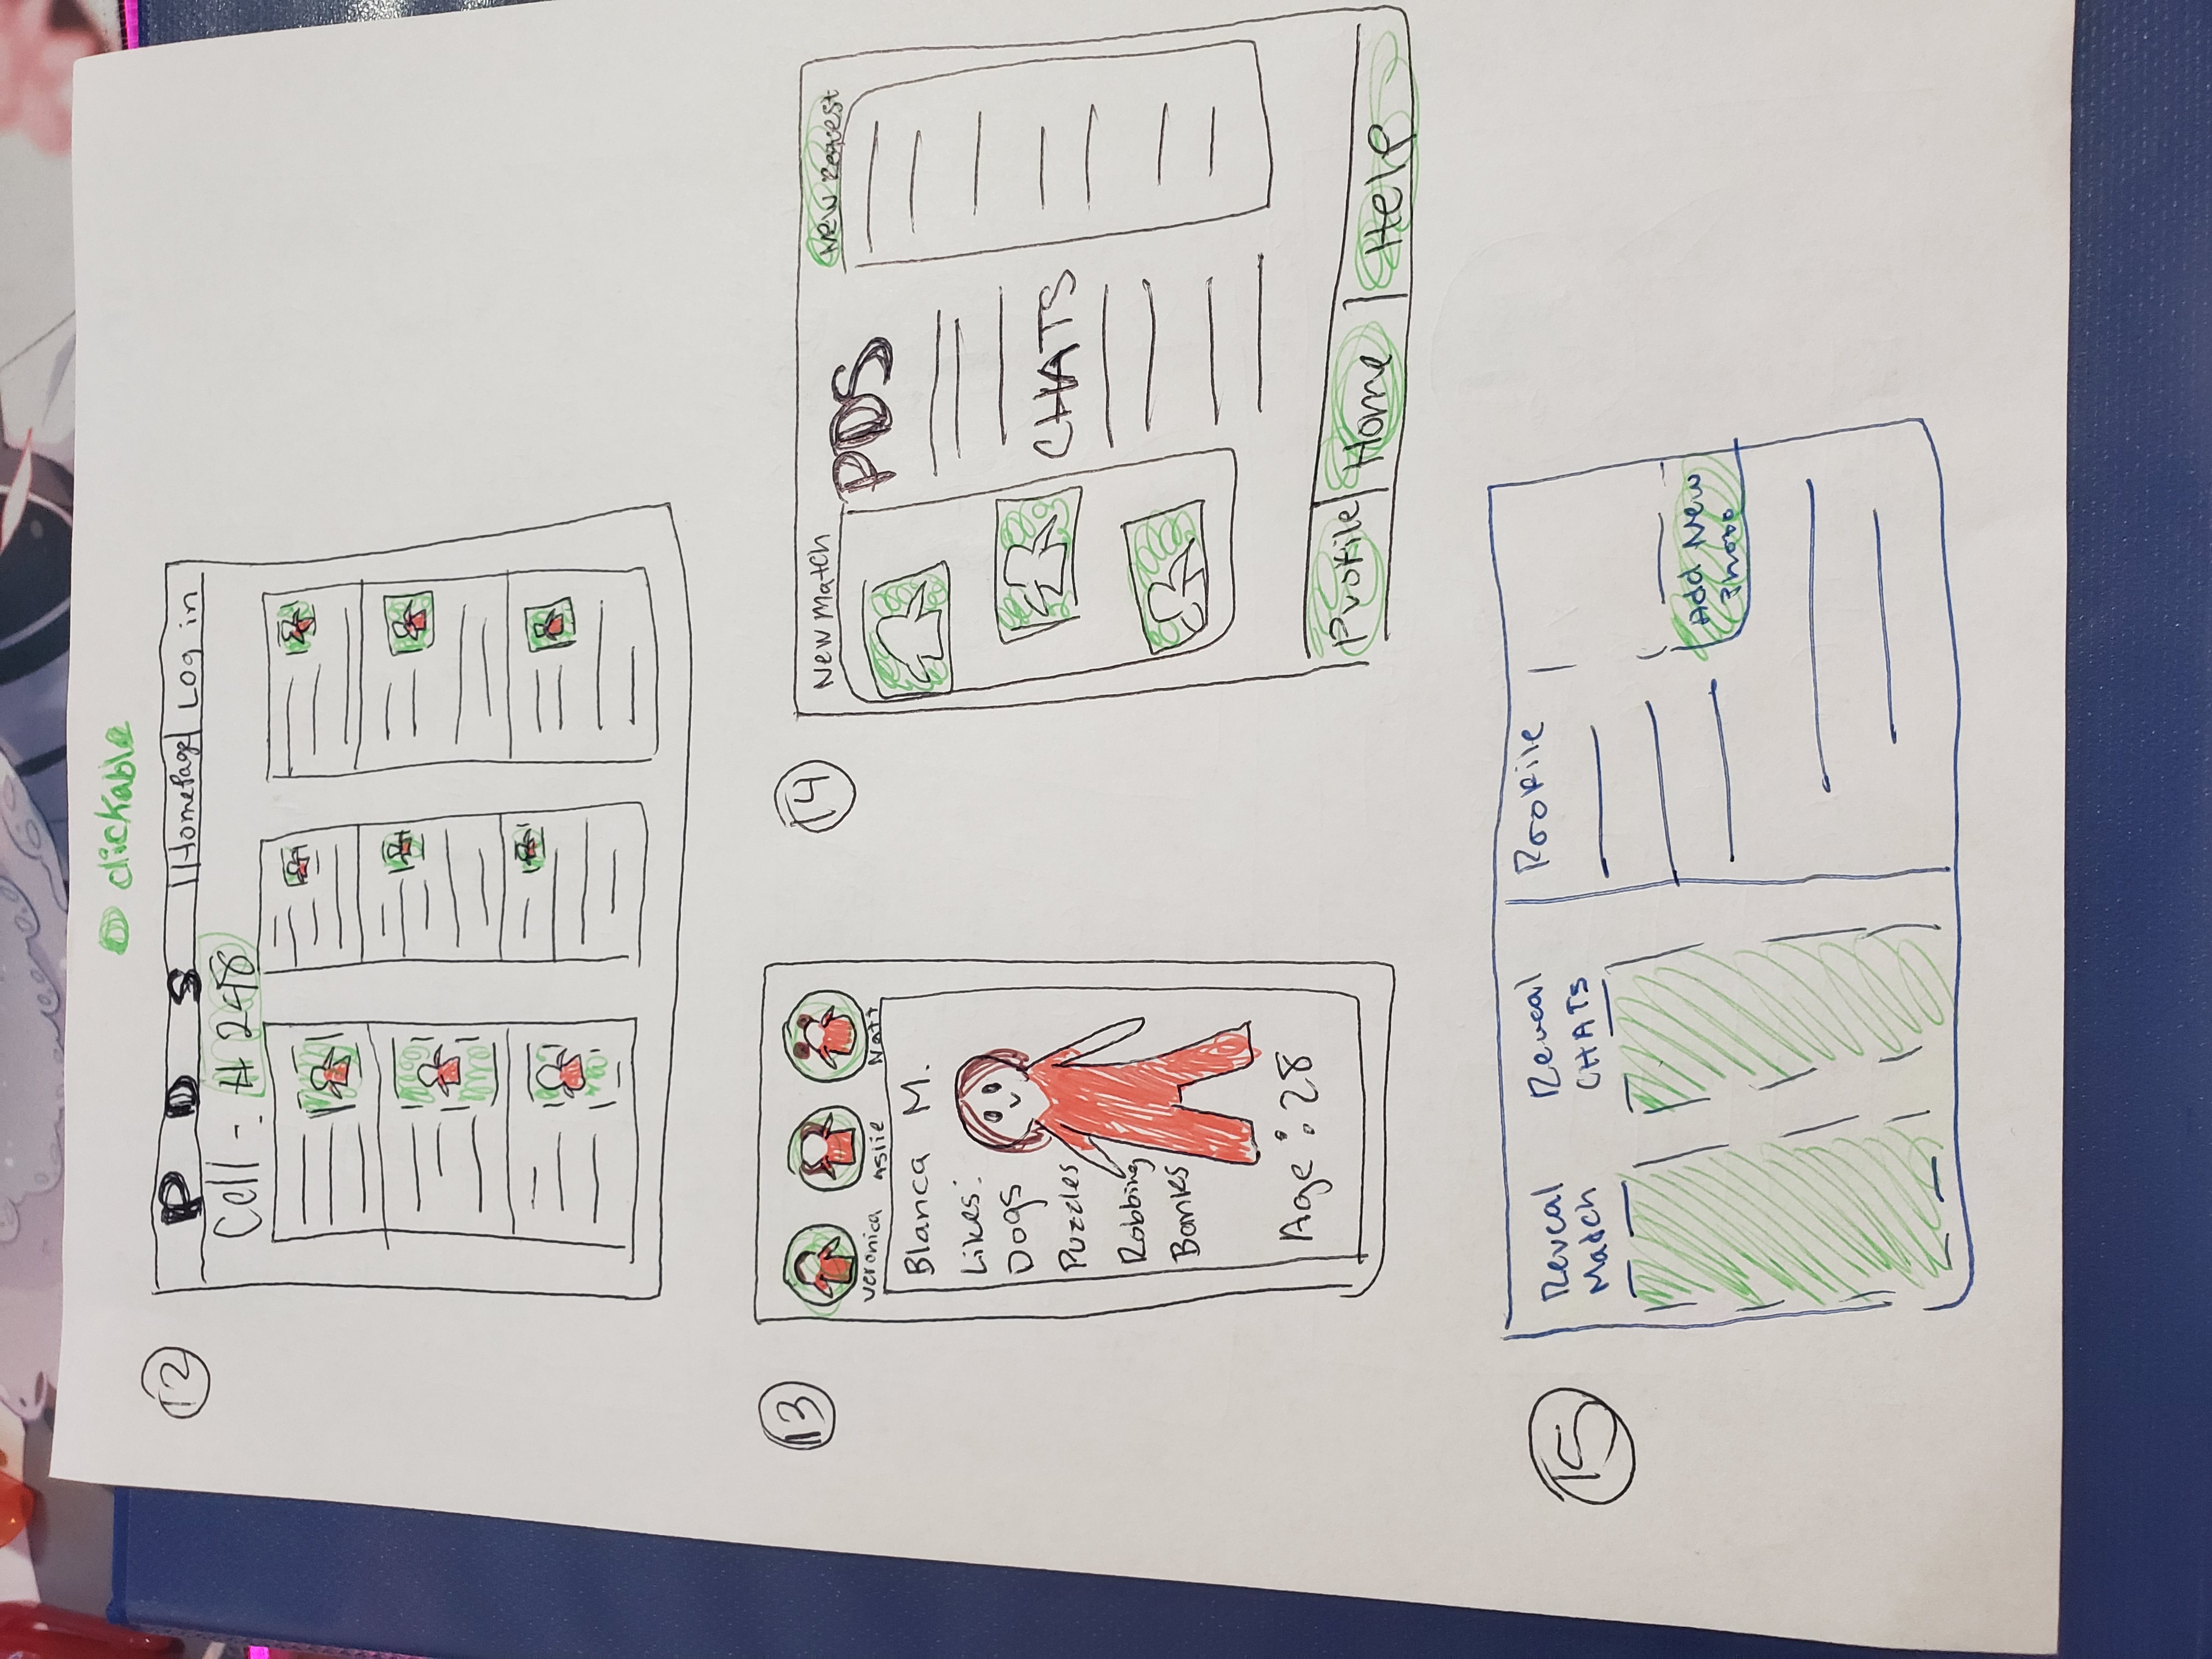 clickable
12
P D S HomePage Log in
Cell - # 248
13
Veronica Aslie Natt
Blanca M.
Likes:
Dogs
Puzzles
Robbing
Banks
Age : 28
14
New Match
New Request
PDS
CHATS
Profile Home Help
15
Reveal
Match
Reveal
CHATS
Profile
Add New
Photo